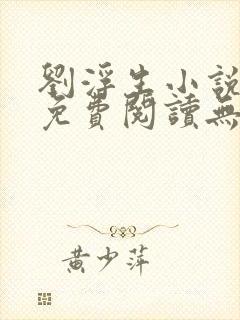 劉浮生小說
免費閱讀無
黃少萍